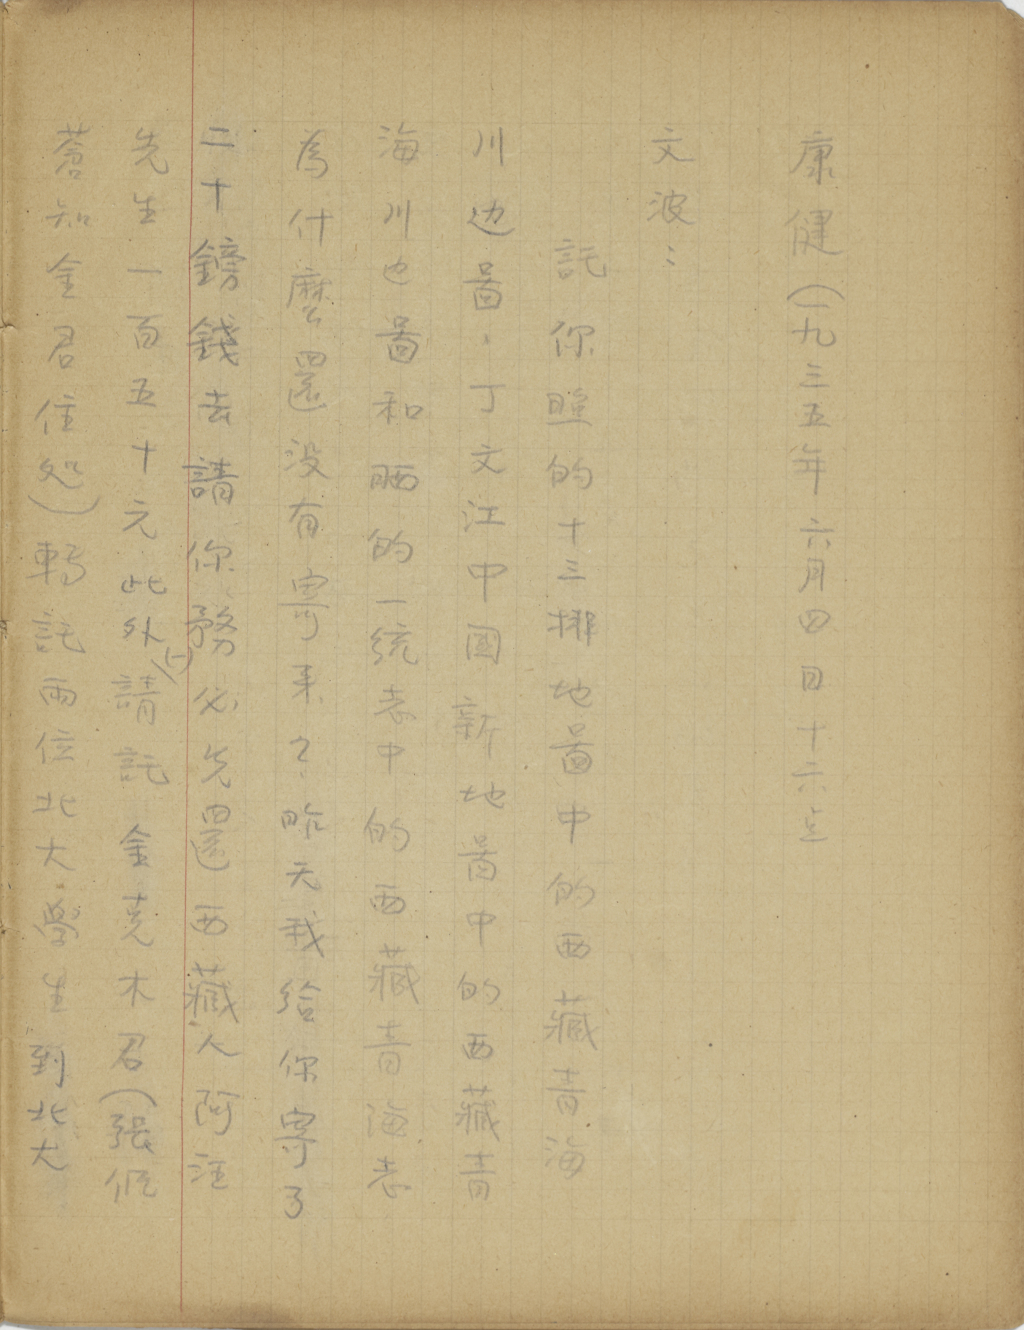 康健(一九三五年六月四日十六点
文波：
託你照的十三排地啚中的西藏青海
川边啚，丁文江中國新地啚中的西藏青
海川边啚和晒的一统志中的西藏青海志
為什麼還没有寄来？昨天我给你寄了
二十鎊錢去請你務必先還西藏人阿汪
先生一百五十元此外(一)請託金克木君(張佩
蒼知金君住処)轉託兩位北大學生到北大